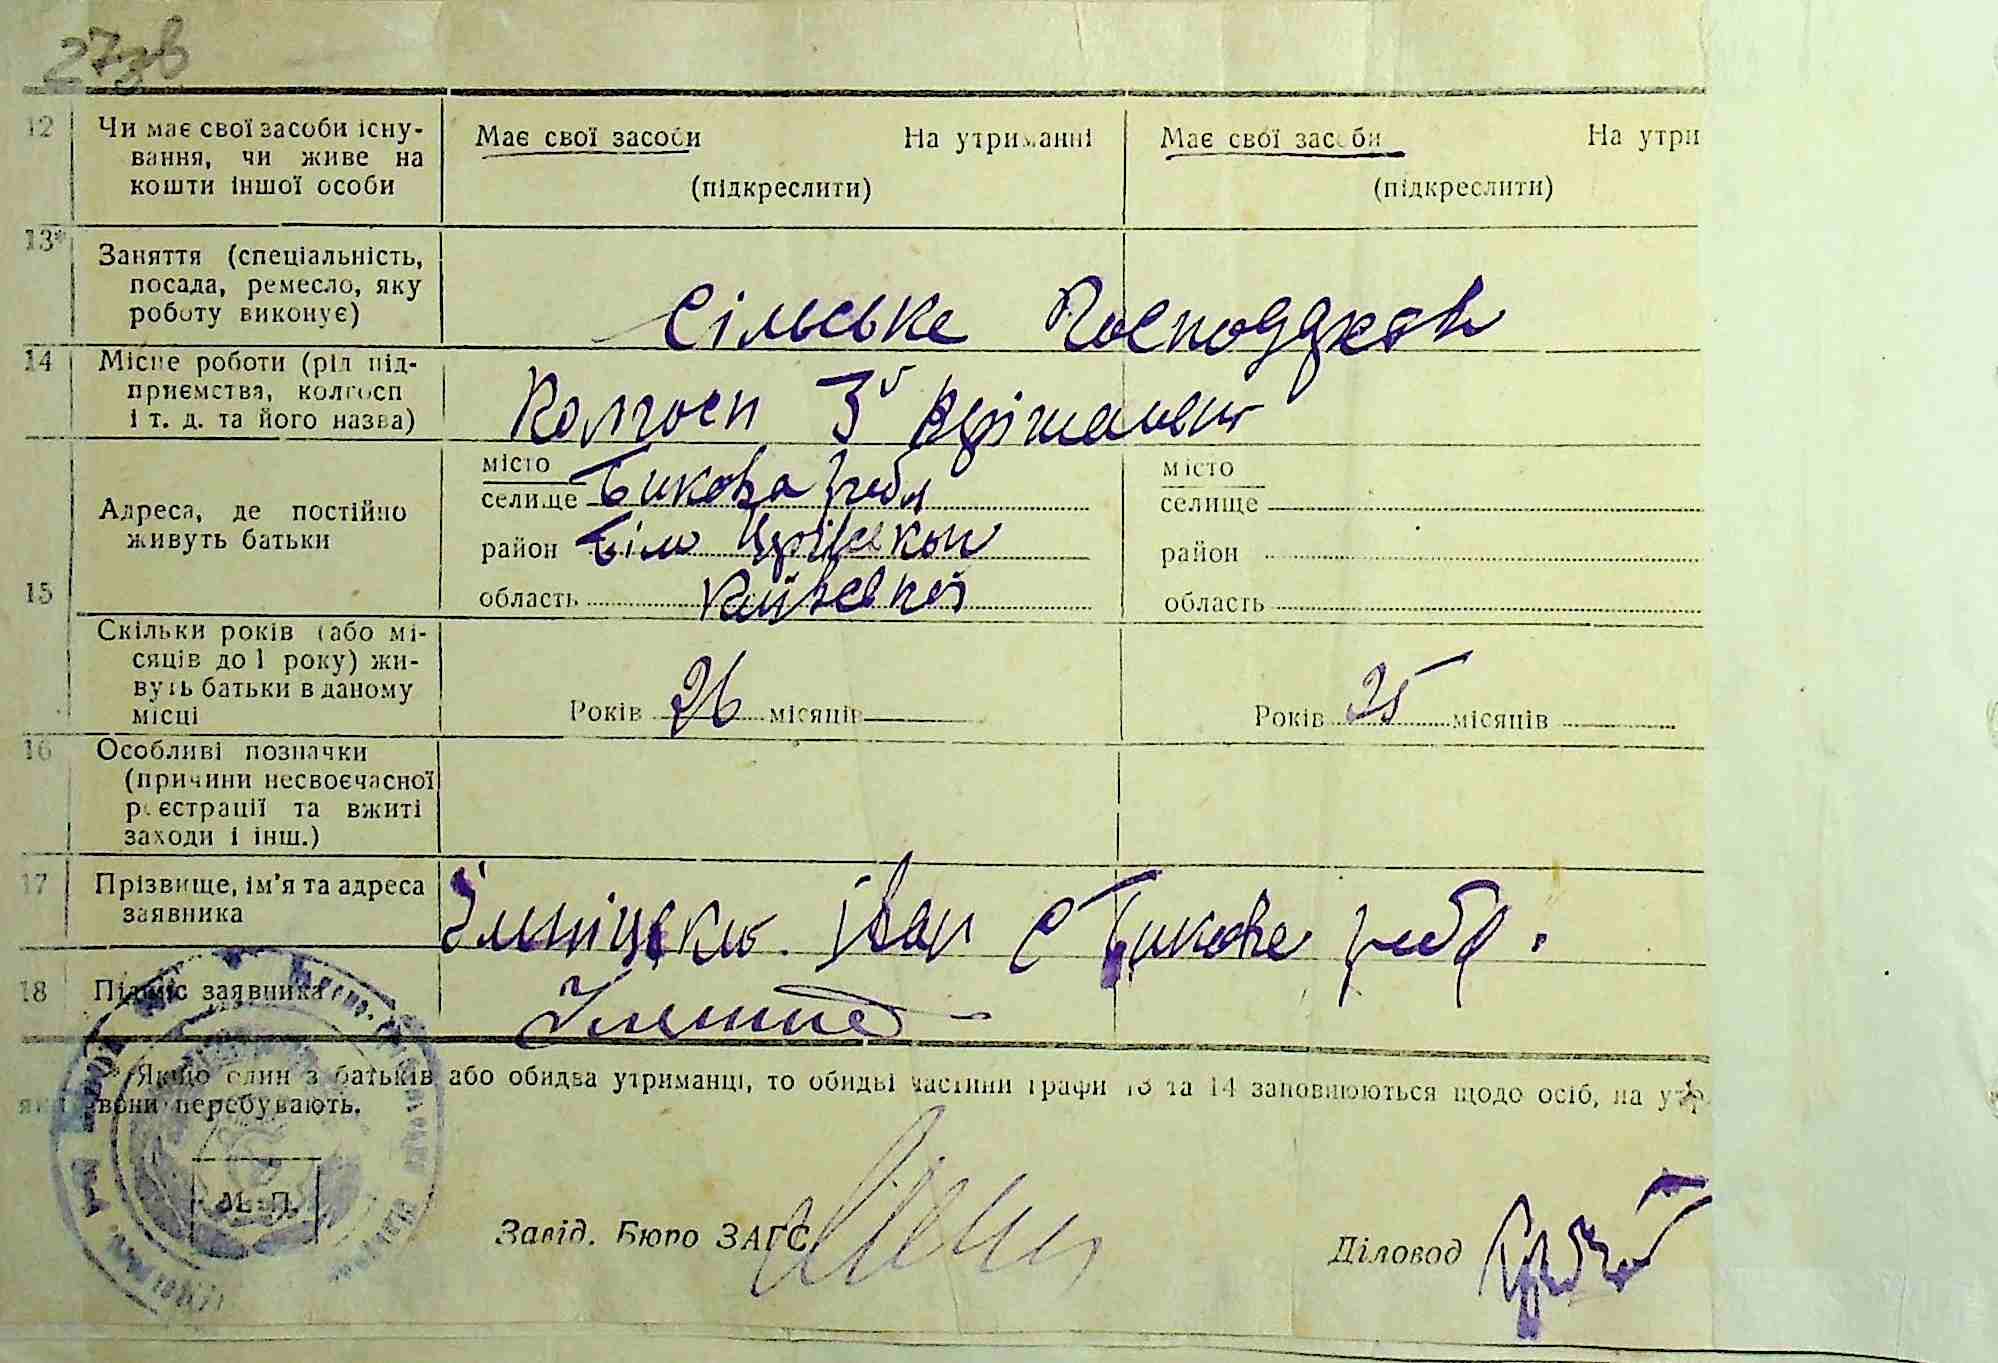 27зв
12 Чи має свої засоби існу-
вання, чи живе на
кошти іншої особи
Має свої засоби На утриманні
(підкреслити)
Має свої засоби На утри
(підкреслити)
13* Заняття (спеціальність,
посада, ремесло, яку
роботу виконує)
Сільське Господарств
14 Місце роботи (рід під-
приємства, колгосп
і т. д. та його назва)
Колгосп 3й
15 Адреса, де постійно
живуть батьки
місто
селище Бикова гребл
район Біло Церківськ
область Київської
місто
селище
район
область
Скільки років (або мі-
сяців до 1 року) жи-
вуть батьки в даному
місці
Років 26 місяців
Років 25 місяців
16 Особливі позначки
(причини несвоєчасної
реєстрації та вжиті
заходи і інш.)
17 Прізвище, ім'я та адреса
заявника
Іван с Бикова гребл.
18 Підпис заявника
* Якщо один з батьків або обидва утриманці, то обидві частини графи 13 та 14 заповнюються щодо осіб, на утр
яких вони перебувають.
М. П.
Завід. Бюро ЗАГС
Діловод